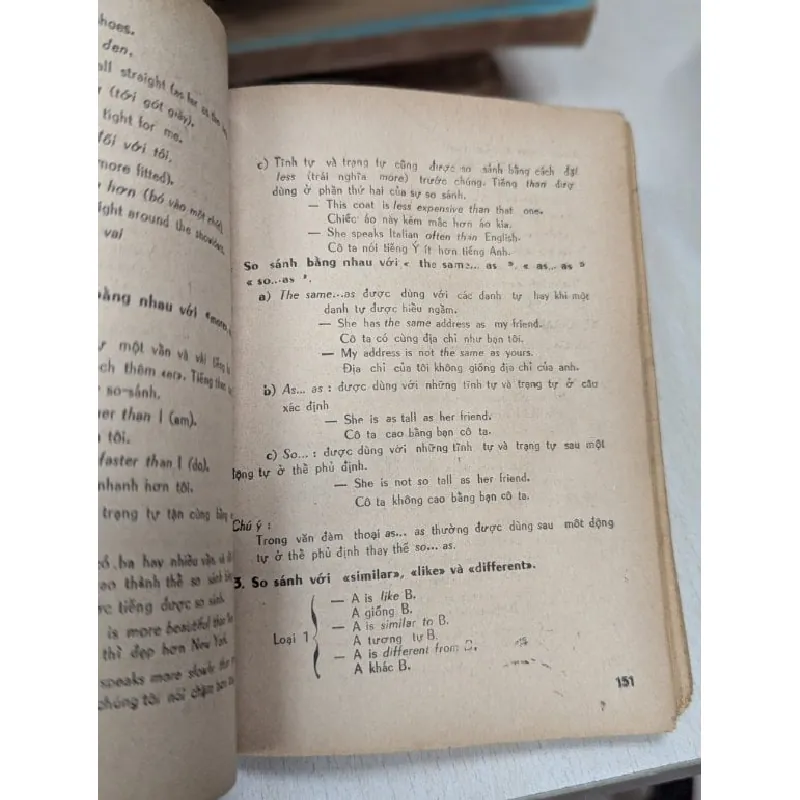 hoes.
đen.
all straight (as far as the
(tới gót giầy).
tight for me.
đối với tôi.
more fitted).
hơn (bó vào một chút).
ight around the shoulders.
vai
bằng nhau với «more,
một vần và vài tiếng
ch thêm «er». Tiếng than
so-sánh.
er than I (am).
tôi.
faster than I (do).
nhanh hơn tôi.
trạng tự tận cùng bằng
ba hay nhiều vần và
thành thể so sánh
tiếng được so sánh.
is more beautiful than
thì đẹp hơn New York.
speaks more slowly
chúng tôi nói chậm
c) Tĩnh tự và trạng tự cũng được so sánh bằng cách đặt
less (trái nghĩa more) trước chúng. Tiếng than đượ
dùng ở phần thứ hai của sự so sánh.
— This coat is less expensive than that one.
Chiếc áo này kém mắc hơn áo kia.
— She speaks Italian often than English.
Cô ta nói tiếng Ý ít hơn tiếng Anh.
So sánh bằng nhau với « the same... as », « as... as »
« so...as ».
a) The same...as được dùng với các danh tự hay khi một
danh tự được hiểu ngầm.
— She has the same address as my friend.
Cô ta có cùng địa chỉ như bạn tôi.
— My address is not the same as yours.
Địa chỉ của tôi không giống địa chỉ của anh.
b) As... as : được dùng với những tĩnh tự và trạng tự ở câu
xác định
— She is as tall as her friend.
Cô ta cao bằng bạn cô ta.
c) So... : được dùng với những tĩnh tự và trạng tự sau một
động tự ở thể phủ định.
— She is not so tall as her friend.
Cô ta không cao bằng bạn cô ta.
Chú ý :
Trong văn đàm thoại as... as thường được dùng sau một động
tự ở thể phủ định thay thế so... as.
3. So sánh với «similar», «like» và «different».
— A is like B.
A giống B.
Loại 1
— A is similar to B.
A tương tự B.
— A is different from B.
A khác B.
151